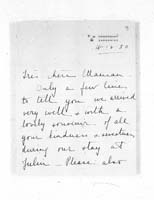 4.12.30
Très chère Maman -
Only a few lines
to tell you we arrived
very well & with a
lovely souvenir of all
your kindness & sweetness
during our stay at
Please also